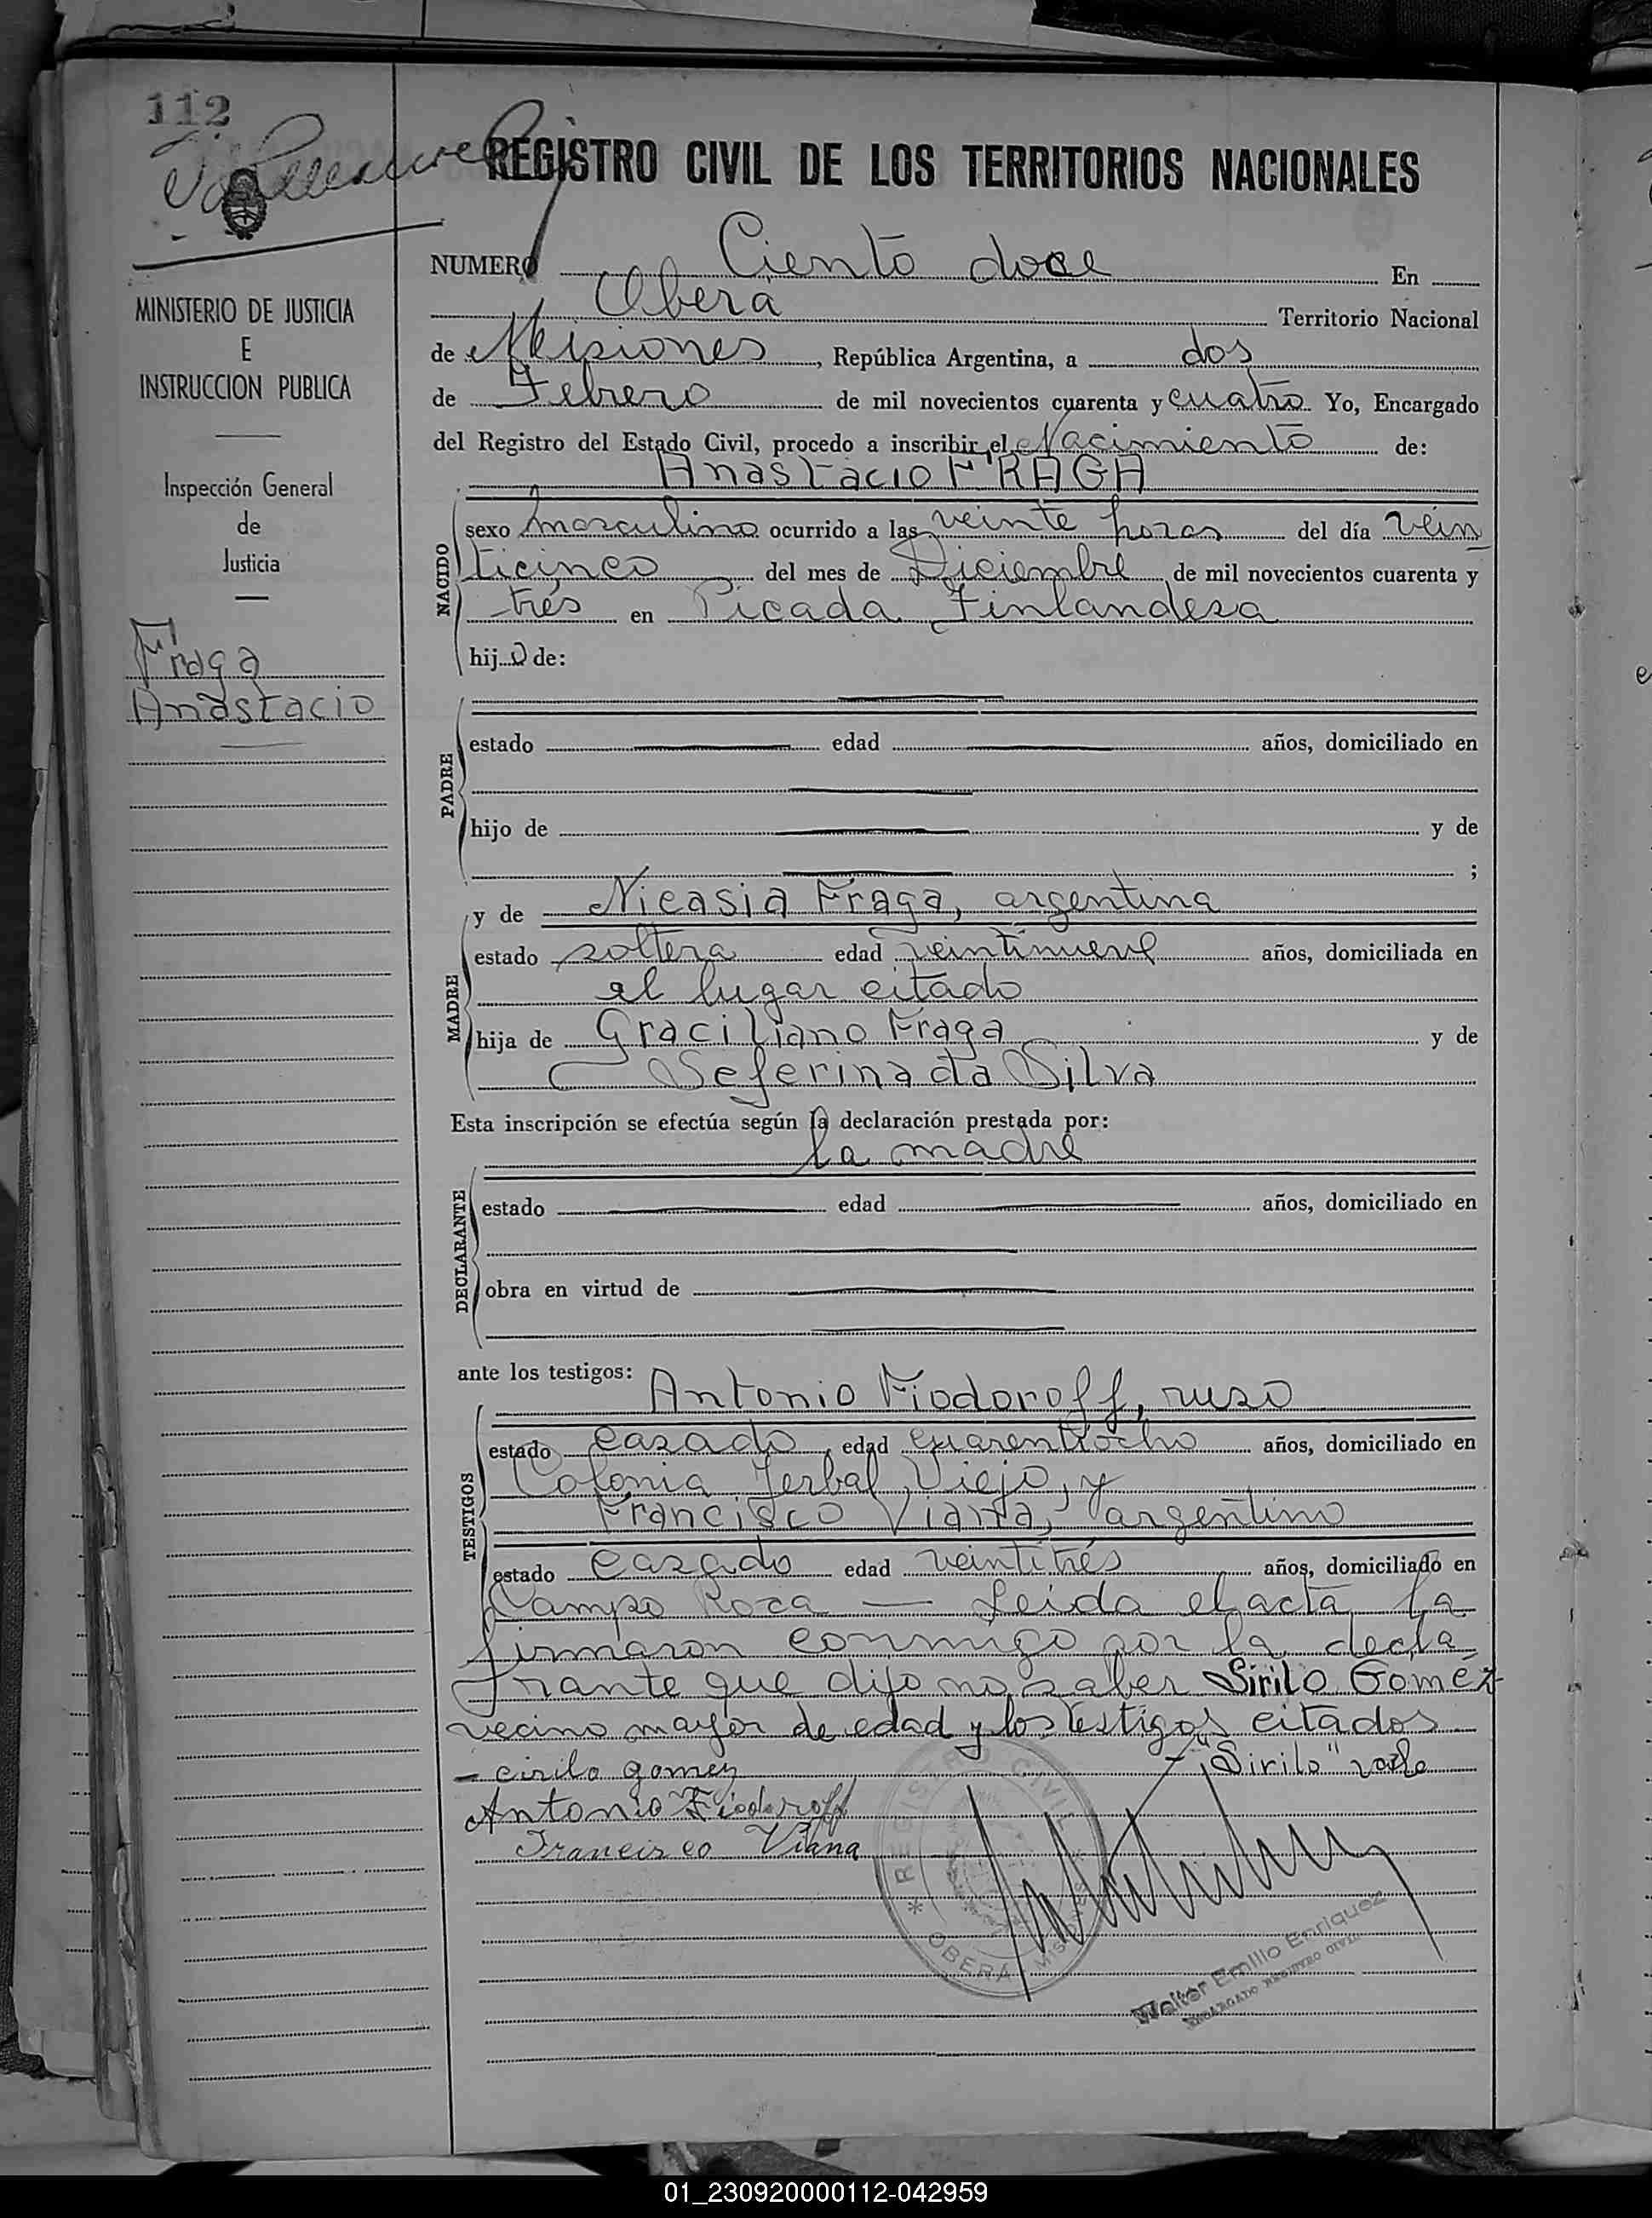 112
REGISTRO CIVIL DE LOS TERRITORIOS NACIONALES
NUMERO Ciento doce En
Oberá Territorio Nacional
de Misiones, República Argentina, a dos
de Febrero de mil novecientos cuarenta y cuatro Yo, Encargado
del Registro del Estado Civil, procedo a inscribir el Nacimiento de:
Anastacio FRAGA
sexo masculino ocurrido a las veinte horas del día vein
ticinco del mes de Diciembre de mil novecientos cuarenta y
trés en Picada Finlandesa
hijo de:
NACIDO
estado edad años, domiciliado en
hijo de y de
;
PADRE
y de Nicasia Fraga, argentina
estado soltera edad veintinueve años, domiciliada en
el lugar citado
hija de Graciliano Fraga y de
Seferina da Silva
MADRE
Esta inscripción se efectúa según la declaración prestada por:
la madre
estado edad años, domiciliado en
obra en virtud de
DECLARANTE
ante los testigos:
Antonio Fiodoroff, ruso
estado casado, edad cuarentiocho años, domiciliado en
Colonia Yerbal Viejo, y
Francisco Viana, argentino
estado casado edad veintitrés años, domiciliado en
Campo Roca — Leida el acta la
TESTIGOS
firmaron conmigo por la decla
rante que dijo no saber Sirilo Goméz
vecino mayor de edad y los testigos citados
"Sirilo" vale
cirilo gomez
Antonio Fiodoroff
Francisco Viana
* REGISTRO CIVIL
OBERÁ MISIONES
Walter Emilio Enriquez
ENCARGADO REGISTRO CIVIL
MINISTERIO DE JUSTICIA
E
INSTRUCCION PUBLICA
Inspección General
de
Justicia
Fraga
Anastacio
01_230920000112-042959